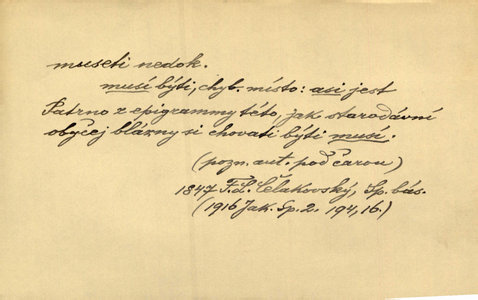 museti nedok.
musí býti, chyb. místo: asi jest
Patrno z epigrammy této, jak starodávní
obyčej blázny si chovati býti musí.
(pozn. aut. pod čarou)
1847 F.L. Čelakovský, Sp. bás.
(1916 Jak. Sp. 2. 194,16.)